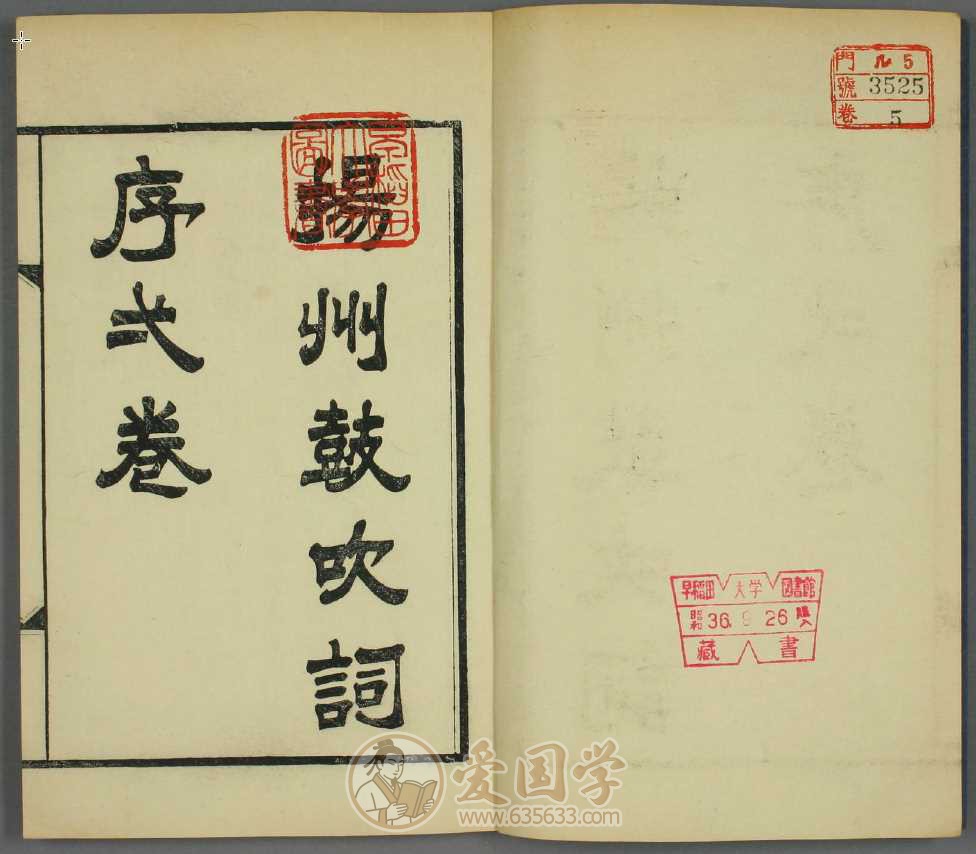 門 ル 5
號 3525
卷 5
早稲田大学図書館
昭和 36. 9. 26 購入
藏書
早稻田大學圖書
揚州鼓吹詞
序弌卷
爱国学
www.635633.com